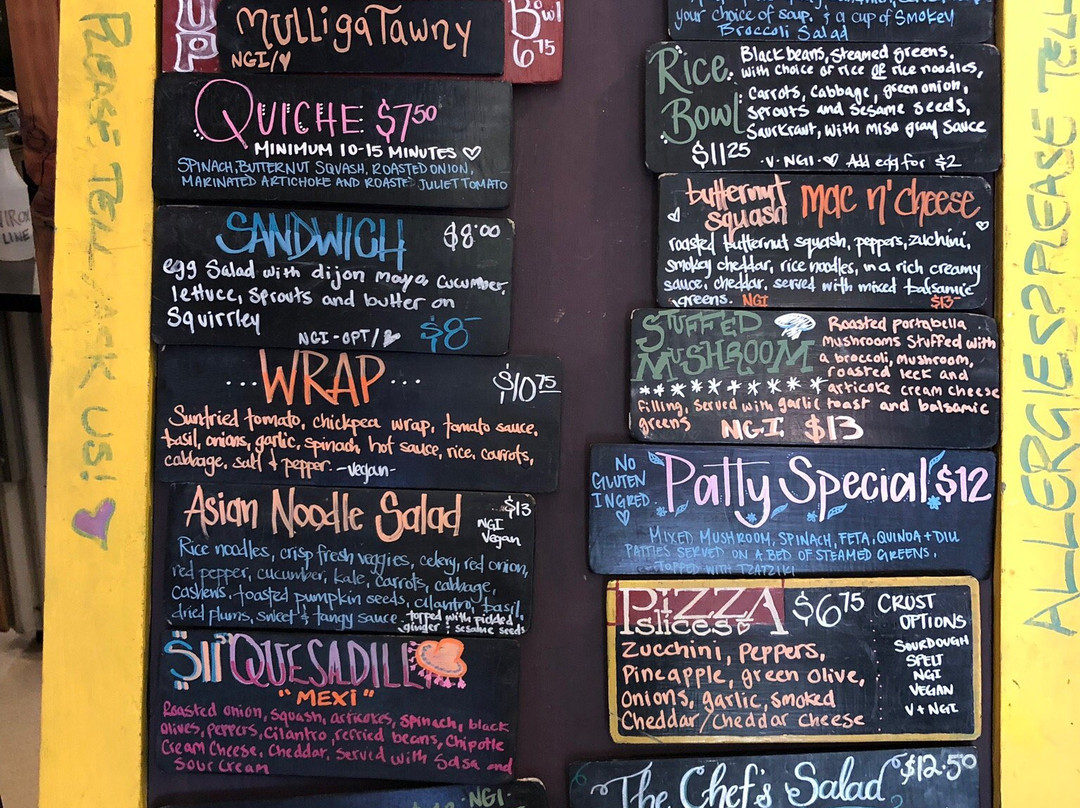 PLEASE TELL/ASK US!
UP
MulligaTawny
NGI/♥
Bowl
6.75
QUICHE $7.50
MINIMUM 10-15 MINUTES ♡
SPINACH, BUTTERNUT SQUASH, ROASTED ONION,
MARINATED ARTICHOKE AND ROASTED JULIET TOMATO
SANDWICH $8.00
egg Salad with dijon mayo, cucumber,
lettuce, Sprouts and butter on
Squirrley
NGI-OPT/♥ $8-
...WRAP... $10.75
Sundried tomato, chickpea wrap, tomato sauce,
basil, onions, garlic, spinach, hot sauce, rice, carrots,
cabbage, salt & pepper. -vegan-
Asian Noodle Salad $13
NGI
Vegan
Rice noodles, crisp fresh veggies, celery, red onion,
red pepper, cucumber, kale, carrots, cabbage,
cashews, toasted pumpkin seeds, cilantro, basil,
dried plums, sweet & tangy sauce. topped with pickled
ginger & sesame seeds
$11 QUESADILLA
"MEXI"
Roasted onion, squash, articokes, spinach, black
olives, peppers, cilantro, refried beans, Chipotle
Cream Cheese, Cheddar. Served with Salsa and
Sour Cream
NGI-
your choice of soup, & a cup of Smokey
Broccoli Salad
Rice
Bowl
$11.25
Black beans, Steamed greens,
with choice of rice or rice noodles,
Carrots, Cabbage, green onion,
Sprouts and Sesame Seeds,
Saurkraut, with miso gravy Sauce
·V·NGI·♡ Add egg for $2
butternut
squash
mac n' cheese
roasted butternut squash, peppers, zuchini,
smokey cheddar, rice noodles, in a rich creamy
sauce, cheddar, served with mixed balsamic
greens. NGI $13-
STUFFED
MUSHROOM
Roasted portabella
mushrooms Stuffed with
a broccoli, mushroom,
roasted leek and
articoke cream cheese
filling, served with garlic toast and balsamic
greens NGI $13
NO
GLUTEN
INGRED.
♡
Patty Special $12
MIXED MUSHROOM, SPINACH, FETA, QUINOA + DILL
PATTIES SERVED ON A BED OF STEAMED GREENS,
TOPPED WITH TZATZIKI
PIZZA
slices
$6.75
CRUST
OPTIONS
SOURDOUGH
SPELT
NGI
VEGAN
V + NGI
Zucchini, Peppers,
Pineapple, green olive,
Onions, garlic, smoked
Cheddar/Cheddar cheese
The Chef's Salad $12.50
ALLERGIES? PLEASE TELL